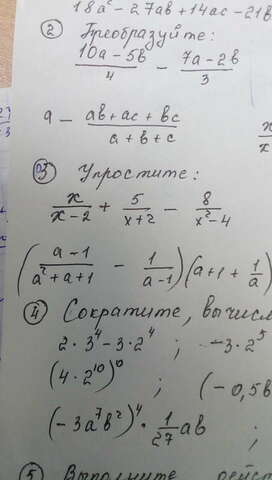 18a² - 27ab + 14ac - 21b
② Преобразуйте:
(10a - 5b)/4 - (7a - 2b)/3
a - (ab + ac + bc)/(a + b + c)
③ Упростите:
x/(x-2) + 5/(x+2) - 8/(x²-4)
((a-1)/(a²+a+1) - 1/(a-1))(a+1+1/a)
④ Сократите, вычисл
2·3⁴ - 3·2⁴ ; -3·2⁵
(4·2¹⁰)⁰ ; (-0,5b
(-3a⁷b²)⁴ · 1/27 ab ;
⑤ Выполните дейст